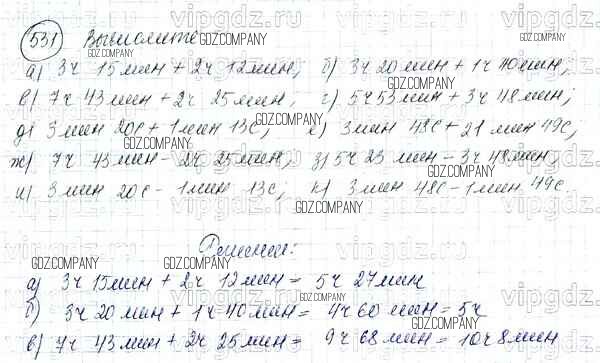 531 Вычислите
а) 3ч 15мин + 2ч 12мин; б) 3ч 20мин + 1ч 40мин;
в) 7ч 43мин + 2ч 25мин; г) 5ч 53мин + 3ч 48мин;
д) 3мин 20с + 1мин 13с; е) 3мин 48с + 21мин 49с;
ж) 7ч 43мин - 2ч 25мин; з) 5ч 23мин - 3ч 48мин;
и) 3мин 20с - 1мин 13с; к) 3мин 48с - 1мин 49с.
Решение:
а) 3ч 15мин + 2ч 12мин = 5ч 27мин
б) 3ч 20мин + 1ч 40мин = 4ч 60мин = 5ч
в) 7ч 43мин + 2ч 25мин = 9ч 68мин = 10ч 8мин